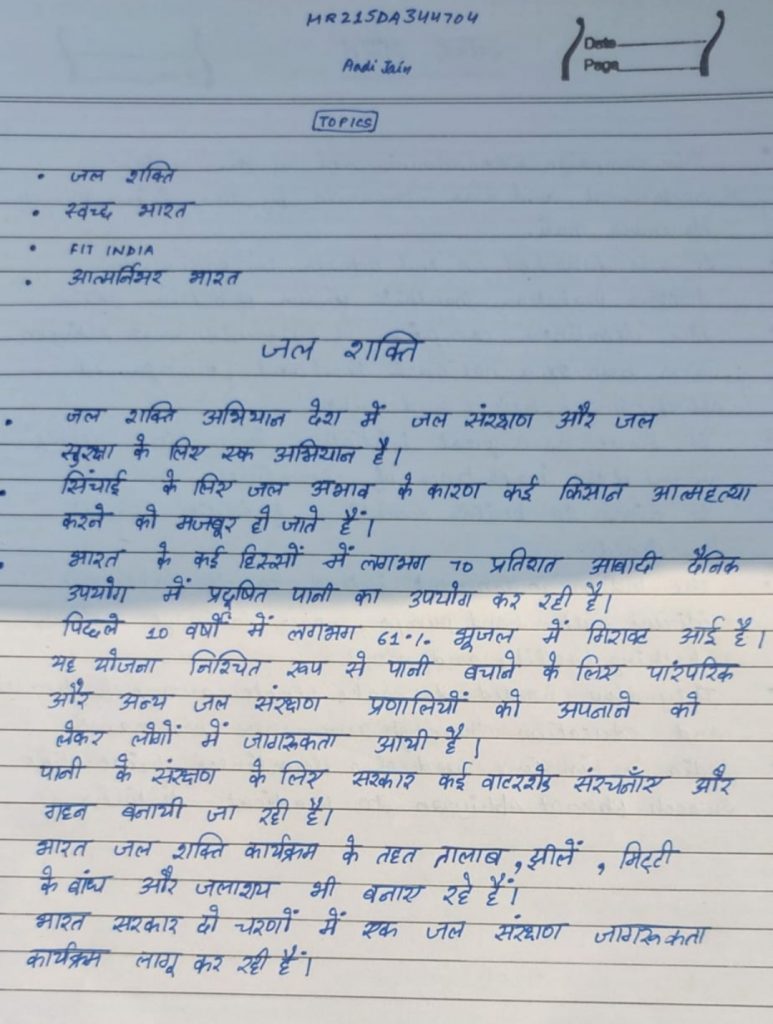 MR215DA344704
Aadi Jain
Date
Page
TOPICS
• जल शक्ति
• स्वच्छ भारत
• FIT INDIA
• आत्मर्निभर भारत
जल शक्ति
• जल शक्ति अभियान देश में जल संरक्षण और जल
सुरक्षा के लिए एक अभियान है।
• सिंचाई के लिए जल अभाव के कारण कई किसान आत्महत्या
करने को मजबूर हो जाते हैं।
• भारत के कई हिस्सों में लगभग 70 प्रतिशत आबादी दैनिक
उपयोग में प्रदूषित पानी का उपयोग कर रही है।
पिछले 10 वर्षों में लगभग 61% भूजल में गिरावट आई है।
यह योजना निश्चित रूप से पानी बचाने के लिए पारंपरिक
और अन्य जल संरक्षण प्रणालियों को अपनाने को
लेकर लोगों में जागरूकता आयी है।
पानी के संरक्षण के लिए सरकार कई वाटरशेड संरचनाँए और
गहन बनायी जा रही है।
भारत जल शक्ति कार्यक्रम के तहत तालाब, झीलें, मिट्टी
के बांध और जलाशय भी बनाए रहे हैं।
भारत सरकार दो चरणों में एक जल संरक्षण जागरूकता
कार्यक्रम लागू कर रही हैं।